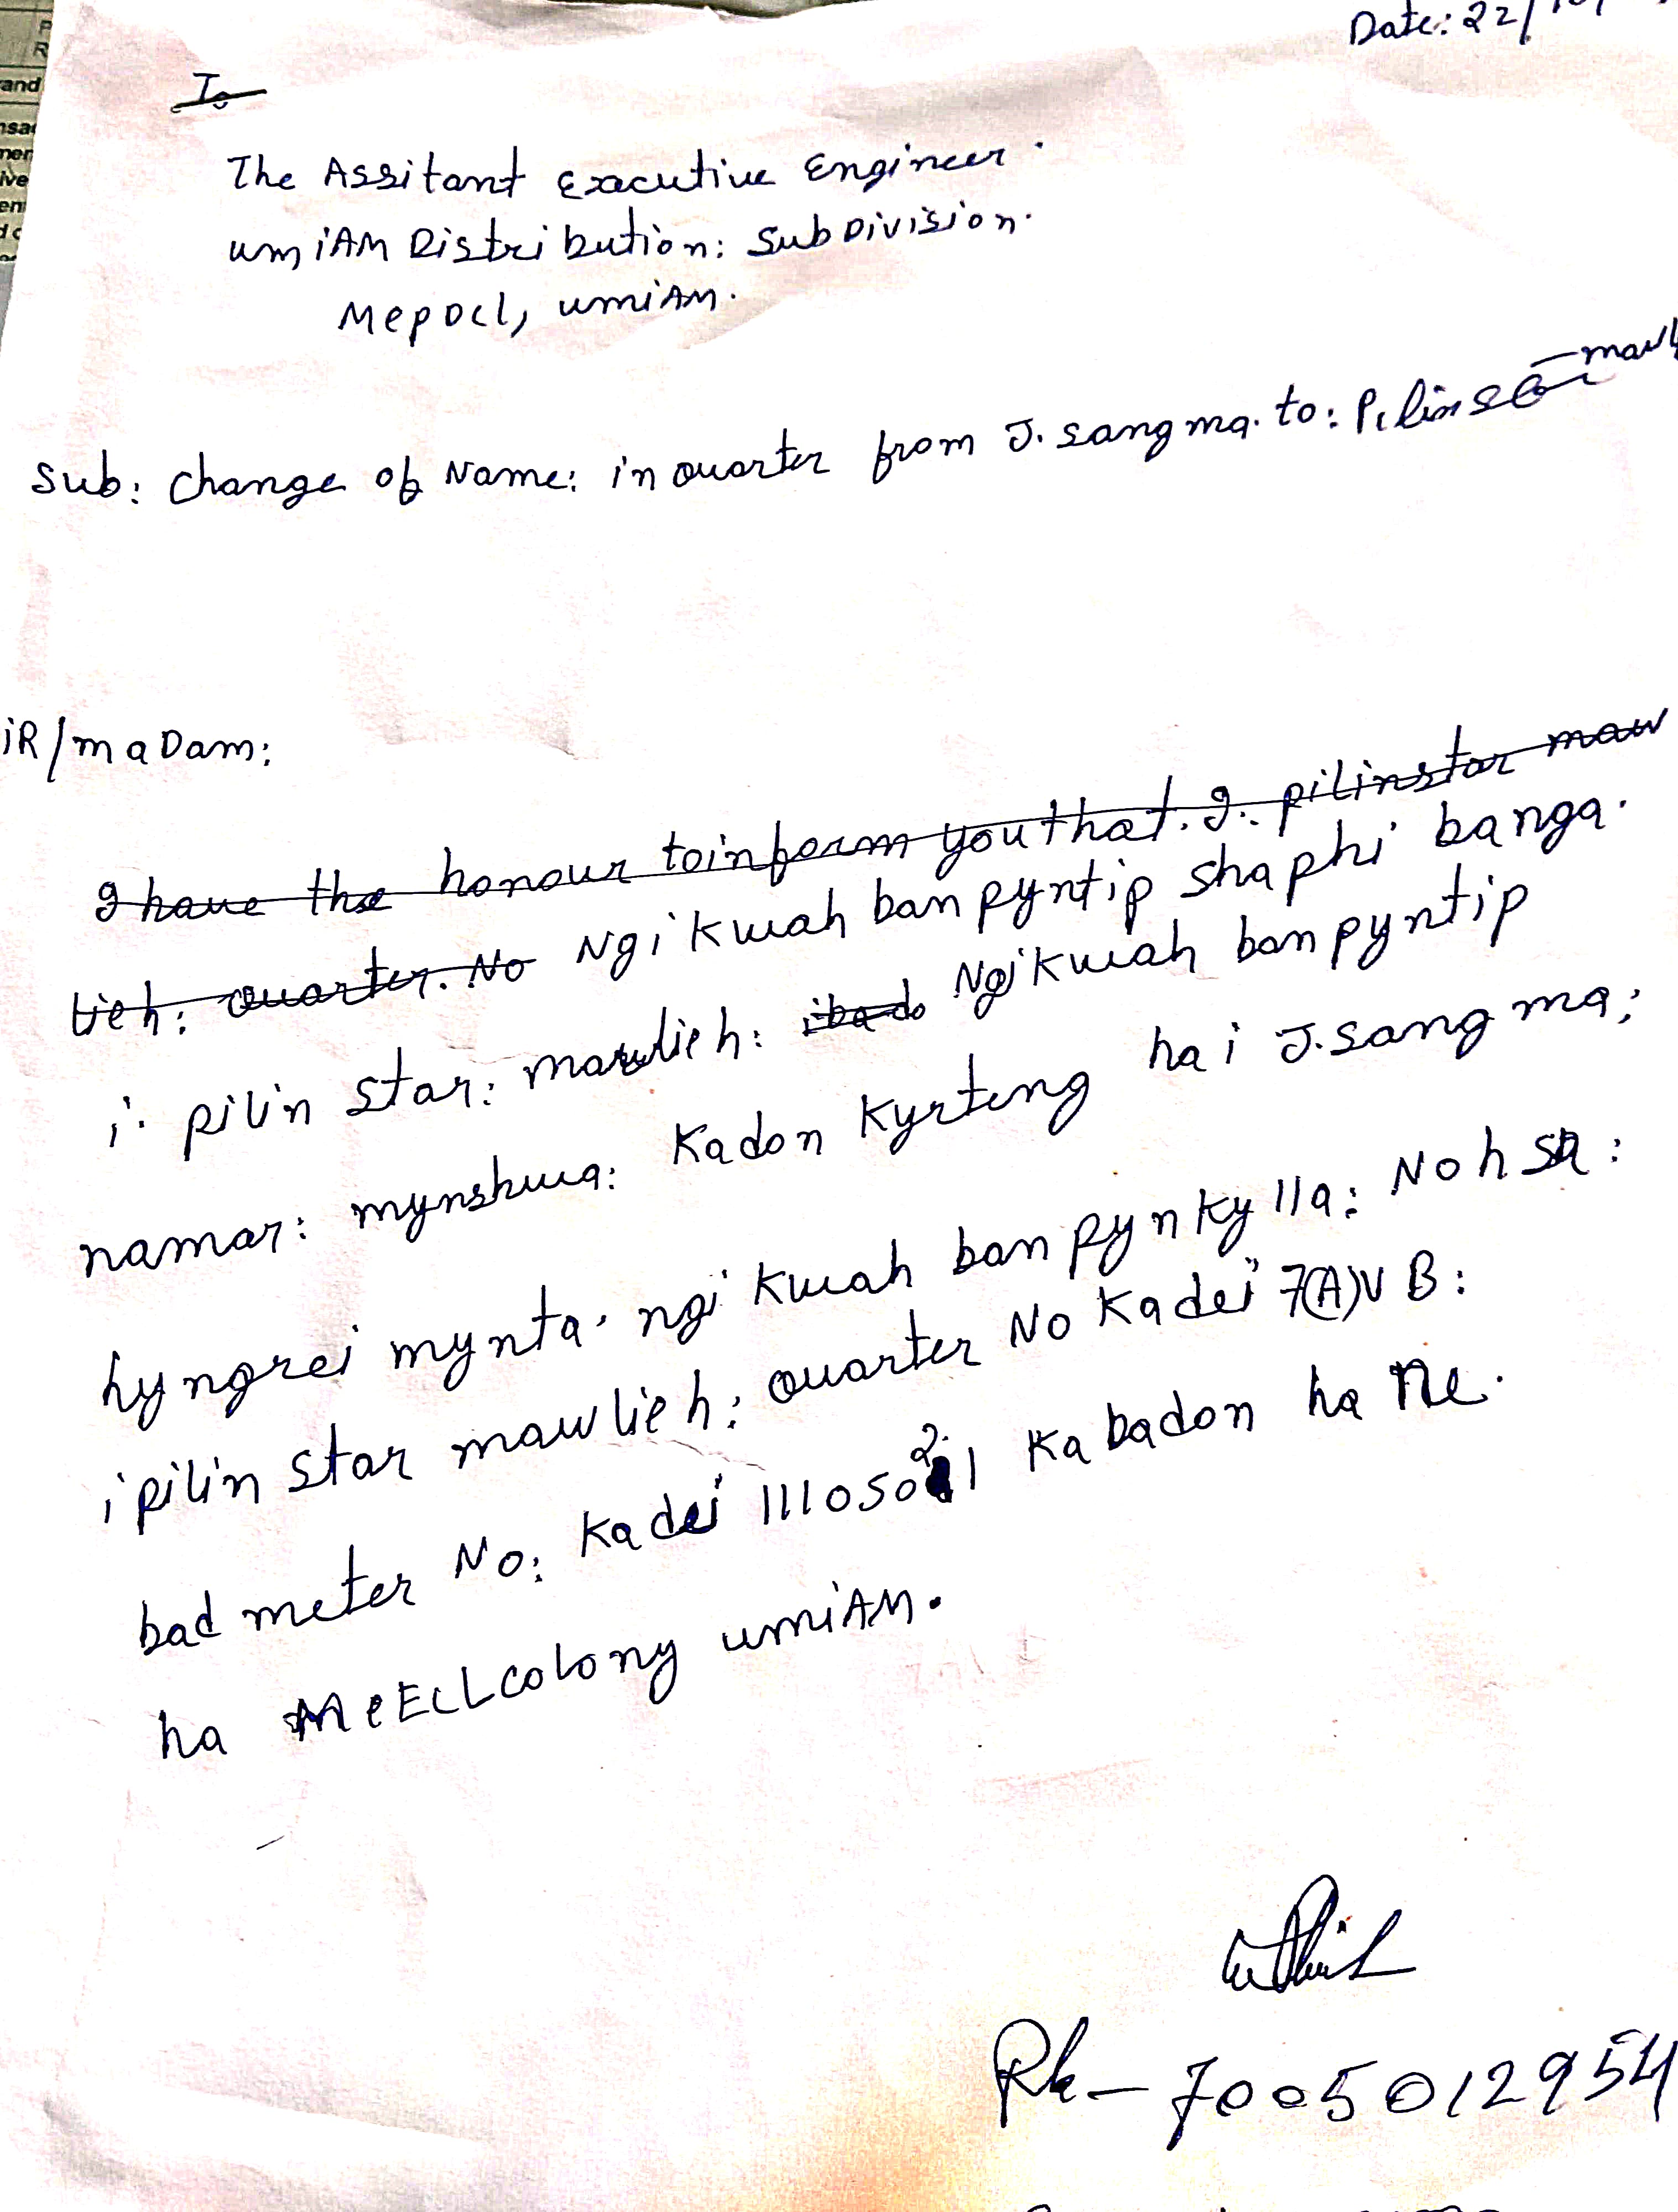 Date: 22/10/
To
The Assitant Executive Engineer.
umiAM Distribution: SubDivision.
Mepdcl, umiAM.
Sub: Change of Name: in Quarter from J. Sangma. to: Pilinsta
iR/maDam:
I have the honour toinform you that. I.. pilinstar maw
lieh: Quarter. No Ngi kwah ban pyntip shaphi banga.
i. pilin star: mawlieh: ibado Ngi kwah ban pyntip
namar: mynshwa: Kadon Kyrteng hai J.sangma;
hyngrei mynta. ngi kwah ban pynkylla: Noh sa:
i pilin star mawlieh: Quarter No Kadei 7(A)V B:
bad meter No: Kadei 11105021 Kabadon ha ne.
ha MeEcLcolony umiAM.
Ph- 7005012954